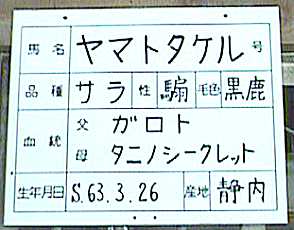 馬名 ヤマトタケル 号
品種 サラ 性 騸 毛色 黒鹿
血統 父 ガロト
母 タニノシークレット
生年月日 S.63.3.26 産地 静内